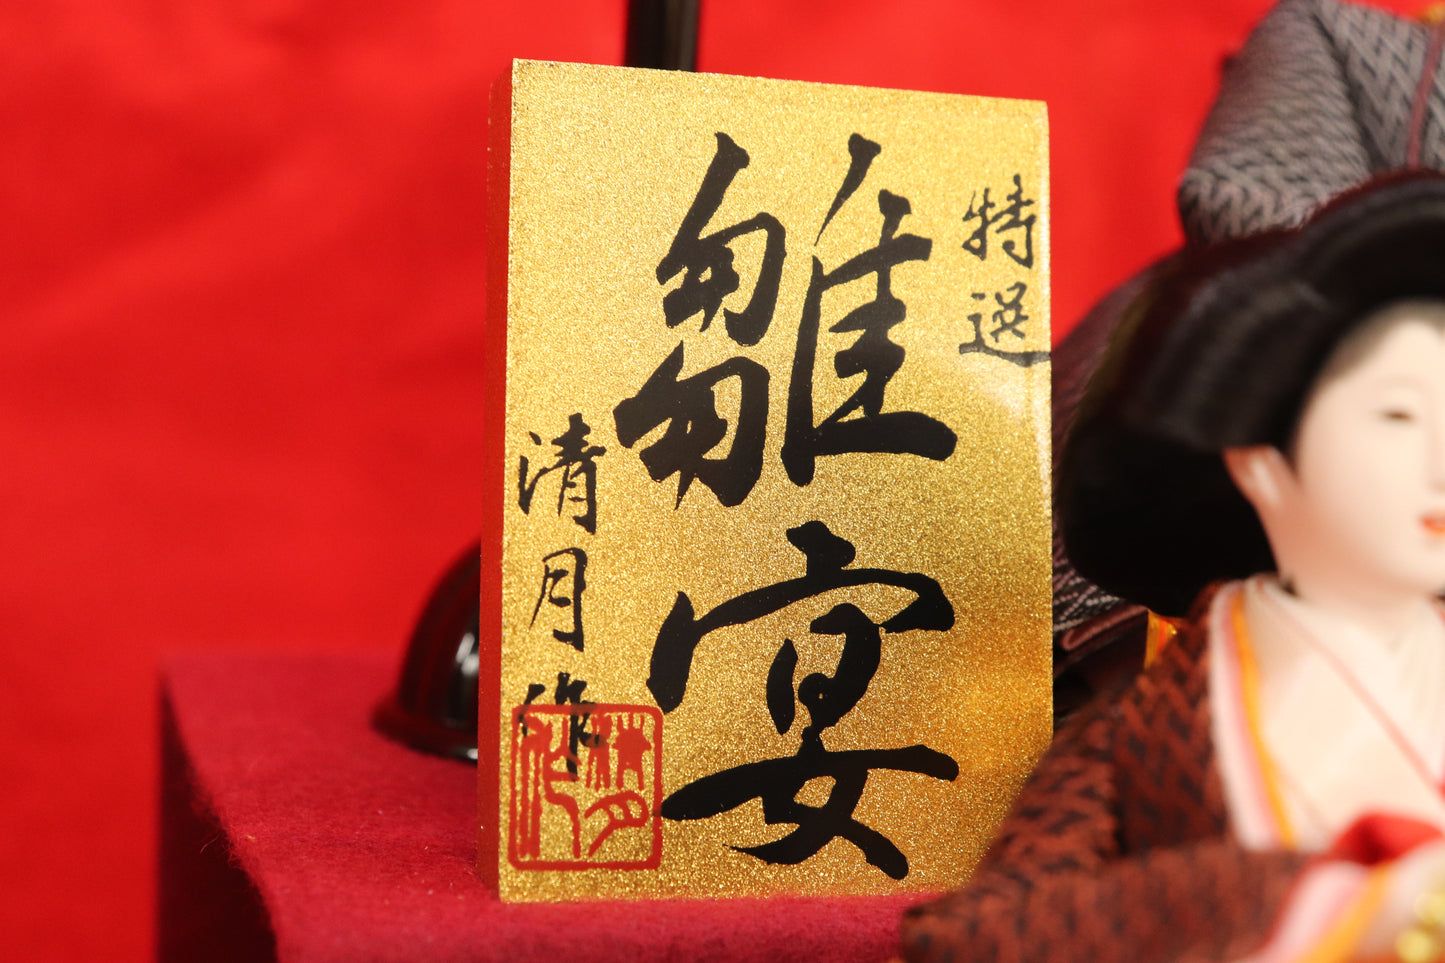 特選
雛宴
清月作